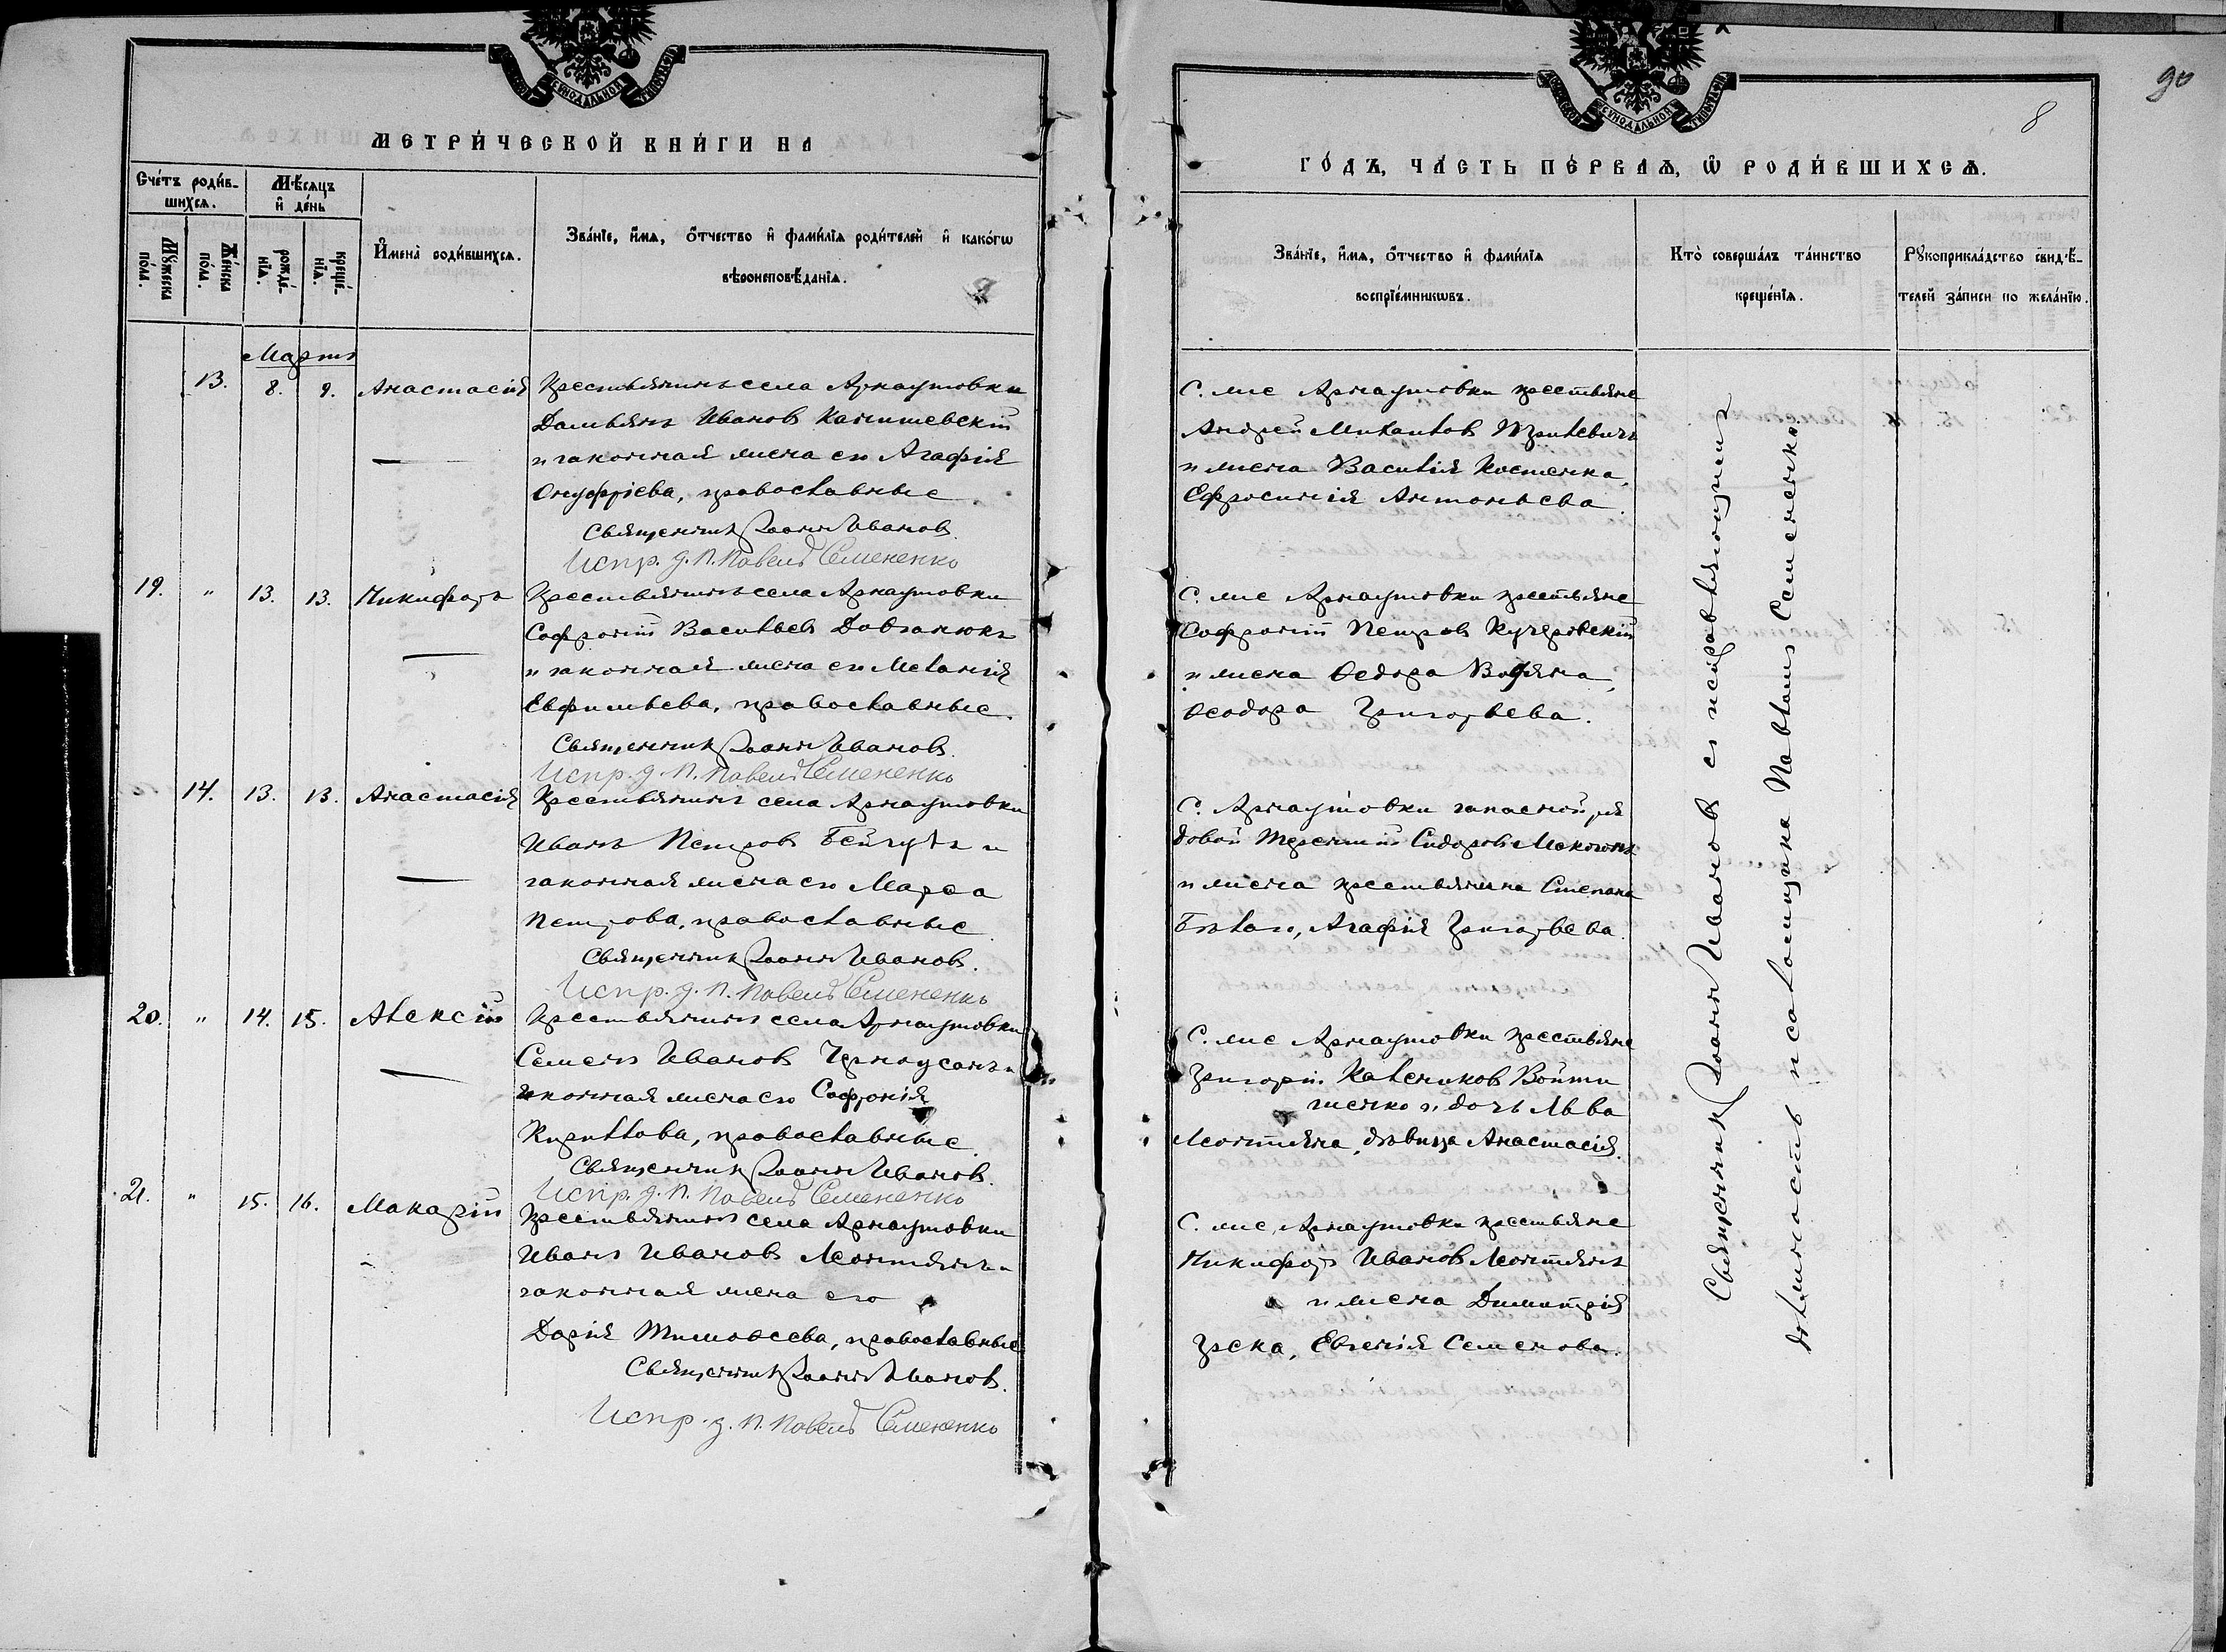 МЕТРИ́ЧЕСКОЙ КНИ́ГИ НА
Сче́тъ роди́в-
шихсѧ.
Мѣ́сяцъ
и҆ де́нь
Мꙋ́жеска
по́ла.
Же́нска
по́ла.
рожде́-
нїѧ.
креще́-
нїѧ.
И҆мена̀ роди́вшихсѧ.
Зва́нїе, и҆́мѧ, ѻ҆́тчество и҆ фами́лїѧ роди́телей и҆ како́гѡ
вѣроисповѣ́данїѧ.
Мартъ
13. 8. 9. Анастасія Крестьянинъ села Арнаутовки
Дамьянъ Ивановъ Камышевскій
и законная жена его Агафія
Онуфріева, православные.
Священникъ Іоаннъ Ивановъ.
Испр. д. п. Павелъ Семененко
19. " 13. 13. Никифоръ Крестьянинъ села Арнаутовки
Софроній Васильевъ Довганюкъ
и законная жена его Меланія
Евфимьева, православные.
Священникъ Іоаннъ Ивановъ.
Испр. д. п. Павелъ Семененко
14. 13. 13. Анастасія Крестьянинъ села Арнаутовки
Иванъ Петровъ и
законная жена его Марѳа
Петрова, православные.
Священникъ Іоаннъ Ивановъ.
Испр. д. п. Павелъ Семененко
20. " 14. 15. Алексій Крестьянинъ села Арнаутовки
Семенъ Ивановъ Черноусанъ и
законная жена его Софронія
Кириллова, православные.
Священникъ Іоаннъ Ивановъ.
Испр. д. п. Павелъ Семененко
21. " 15. 16. Макарій Крестьянинъ села Арнаутовки
Иванъ Ивановъ Леонтянъ и
законная жена его
Дарія Тимоѳеева, православные
Священникъ Іоаннъ Ивановъ.
Испр. д. п. Павелъ Семененко
90
8
ГО́ДЪ, ЧА́СТЬ ПЕ́РВАѦ, Ѽ РОДИ́ВШИХСѦ.
Зва́нїе, и҆́мѧ, ѻ҆́тчество и҆ фами́лїѧ
воспрїе́мникѡвъ.
Кто̀ соверша́лъ та́инство
креще́нїѧ.
Рꙋкоприкла́дство свидѣ́-
телей за́писи по жела́нїю.
С. же Арнаутовки крестьяне
Андрей Михаиловъ
и жена Василія Костенка,
Ефросинія Антоньева.
С. же Арнаутовки крестьяне
Софроній Петровъ Кучеровскій
и жена Ѳедора
Ѳеодора Григорьева.
С. Арнаутовки запасной ря
довой Терентій Сидоровъ Мокогонъ
и жена крестьянина Степана
Бѣлаго, Агафія Григорьева.
С. же Арнаутовки крестьяне
Григорій Калениковъ Войти
шенко и дочь Льва
Леонтяна, дѣвица Анастасія.
С. же Арнаутовки крестьяне
Никифоръ Ивановъ Леонтянъ
и жена Димитрія
Грека, Евгенія Семенова.
Священникъ Іоаннъ Ивановъ съ исправляющимъ
должность псаломщика Павломъ Семененко.